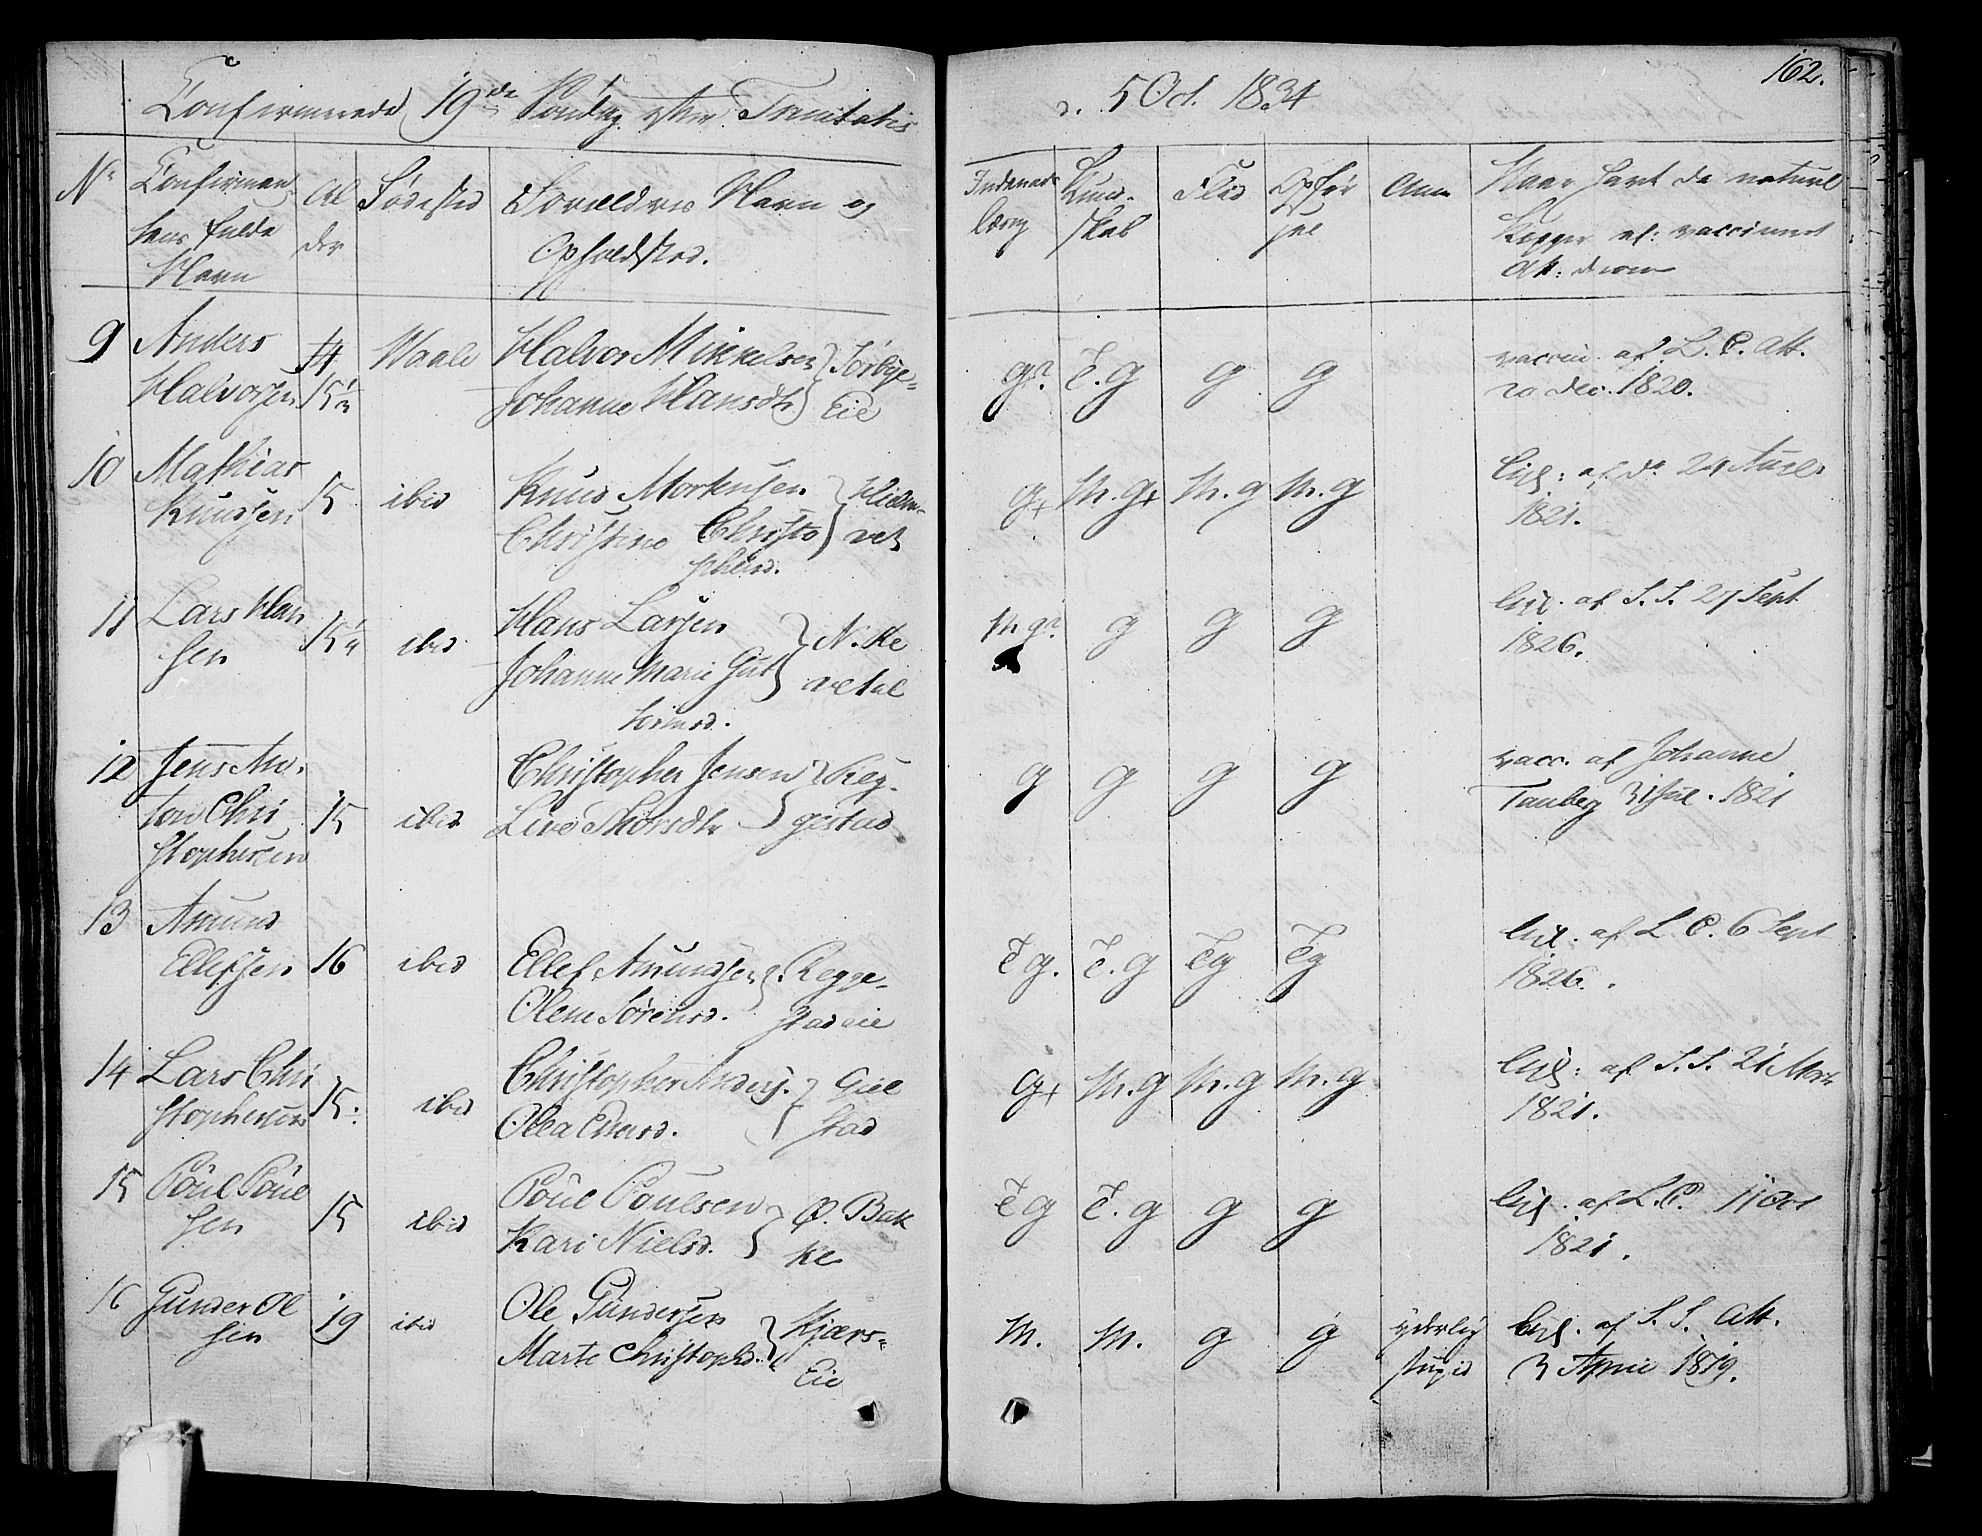 162.
Confirmerede 19de Søndag efter Trinitatis
d. 5 Oct. 1834
Nr
Confirman
tens fulde
Navn
Al
der
Fødested
Forældres Navn og
Opholdsted.
Indenads
læsning
Kund-
skab
Flid
Opfør
sel
Anm
Naar havt de naturl
Kopper el: vaccineret
Att: derom
9 Anders
Halvorsen
14
15½
Waale
Halvor Mikkelsen
Johanne Hansdtr
Sørbye-
Eie
gr. T.g g g
vaccin. af L. P. Att.
20 dec. 1820.
10 Mathias
Knudsen
15 ibid
Knud Mortensen
Christine Christo
phersd.
g+ M.g+ M.g M.g
lig: af do 24
1821.
11 Lars Han
sen
15¼ ibid
Hans Larsen
Johanne Marie Gut
tormsd.
N. Re
vetal
M gr. g g g
lig. af S. S. 27 Sept
1826.
12 Jens An.
ton Chri
stophersen
15 ibid
Christopher Jensen
Live Thorsdtr
Reg-
gestad
g g g g
vacc. af Johanne
Tanberg 31 Jul. 1821
13 Amund
Ellefsen
16 ibid
Ellef Amundsen
Olene Sørensd.
Regge-
stad eie
T g. T.g Tg Tg
lig. af L. P. 6 Sept
1826.
14 Lars Chri
stophersen
15. ibid
Christopher Anders.
Olea
Giel
stad
g+ M.g M.g M.g
lig: af S. S. 21 Marts
1821.
15 Poul Poul
sen
15 ibid
Poul Poulsen
Kari Nielsd.
Ø. Bak
ke
T g T.g g g
lig. af L. P. 11 Oct
1821.
16 Gunder Ol
sen
19 ibid
Ole Gundersen
Marte Christophd.
Kjærs-
Eie
M. M. g g
yderlig
stupid
lig. af S. S. Att.
3 April 1819.